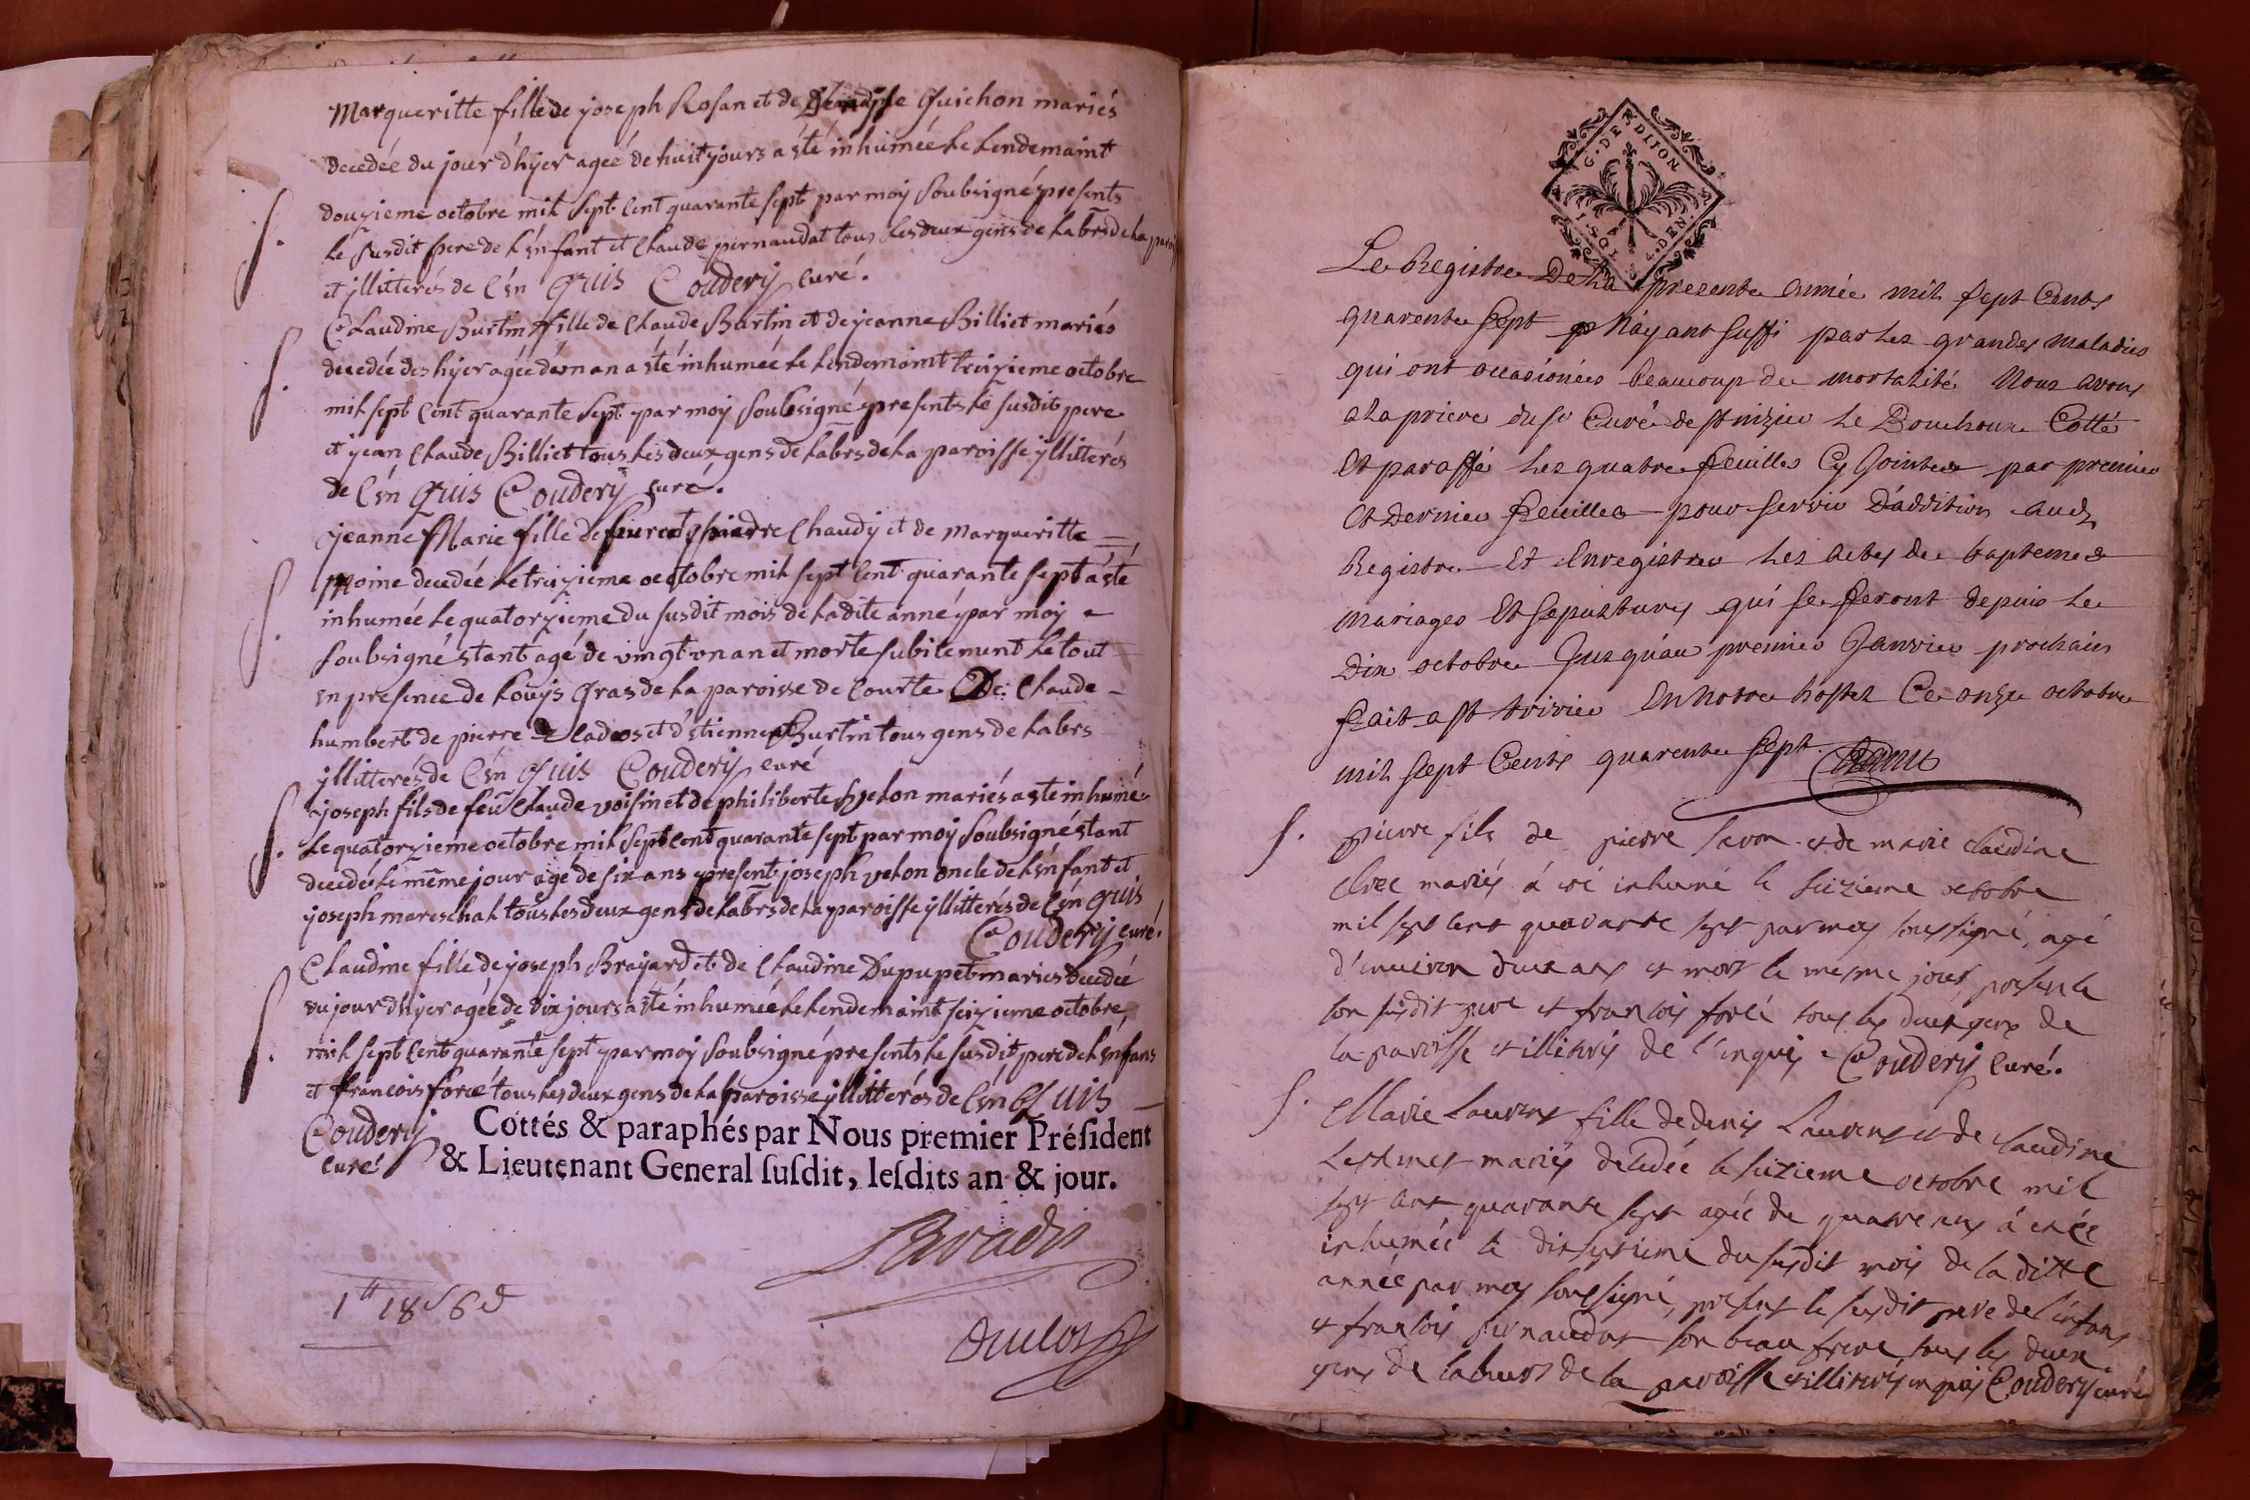 Margueritte fille de joseph Rosan et de Guichon mariés
decedée du jour d'hÿer ageé de huit jours a ésté inhumée le lendemaint
douzieme octobre mil sept Cent quarante sept par moÿ soubsigné presents
le susdit pere de l'énfant et Claude pernaudat tous les deux gens de labrs de la
et ÿllitterés de Cén quis Couderÿ curé.
S.
Claudine Burtin fille de Claude Burtin et de jeanne Billiet mariés
decedée des hÿer agée d'un an a ésté inhumeé le lendemaint treizieme octobre
mil sept Cent quarante sept par moÿ soubsigné presents le susdit pere
et jean Claude Billiet tous les deux gens de labrs de la paroisse ÿllitterés
de Cén quis Couderÿ curé.
S.
jeanne Marie fille de pierre Chaudÿ et de Margueritte
Moine decedée le treizieme octobre mil sept Cent quarante sept a ésté
inhumée le quatorzieme du susdit mois de ladite anné par moÿ
soubsigné éstant agé de vingt un an et morte subitement le tout
en presence de Louÿs Gras de la paroisse de Courte De Claude
humbert de pierre et d'étienne Burtin tous gens de labrs
ÿllitterés de Cén quis Couderÿ curé
S.
joseph fils de feü Claude voisin et de philiberte velon mariés a esté inhumé
le quatorzieme octobre mil sept Cent quarante sept par moÿ soubsigné éstant
decedé le même jour agé de six ans present joseph velon oncle de l'énfant et
joseph mareschal tous les deux gens de labrs de la paroisse ÿllitterés de Cén quis
Couderÿ curé.
S.
Claudine fille de joseph Braÿard et de Claudine Dupupet mariés decedeé
du jour d'hÿer ageé de dix jours a ésté inhumeé le lendemaint seizieme octobre
mil sept Cent quarante sept par moÿ soubsigné presents le susdit pere de l'énfans
et francois forcé tous les deux gens de la paroisse ÿllitterés de Cén quis
S.
Couderÿ
curé
Cottés & paraphés par Nous premier Préſident
& Lieutenant General ſuſdit, leſdits an & jour.
G. DE DIJON
Le Registre De La presente année mil sept Cents
quarente sept N'ayant suffi par les grandes maladies
qui ont occasionées beaucoup de mortalité Nous avons
a la priere du sr Curé de st nizier le Bouchoux Cotté
Et paraffé les quatre feuilles Cy Jointes par premier
Et Dernier feuilles pour servir D'addition aud.
Registre Et Enregistrer les actes de baptemes
Mariages Et sepultures qui se feront depuis le
Dix octobre Jusqu'au premier Janvier prochain
fait a st trivier En notre hostel Ce onze octobre
mil sept Cents quarente sept.
S. pierre fils de pierre et de marie claudine
mariés à été inhumé le seizieme octobre
mil sept cent quarante sept par moy soussigné, agé
d'environ deux ans et mort le mesme jour, present le
son susdit pere et françois forcé tous les deux gens de
la paroisse et illiterés de l'enquis Couderÿ Curé.
S. Marie Laurent fille de denis Laurent et de claudine
mariés decedée le seizieme octobre mil
sept cent quarante sept agée de quatre ans à étée
inhumée le dixseptieme du susdit mois de la ditte
année par moy soussigné, present le susdit pere de l'enfant
et françois pernaudat son beau frere tous les deux
gens de labeurs de la paroisse et illiterés enquis Couderÿ curé